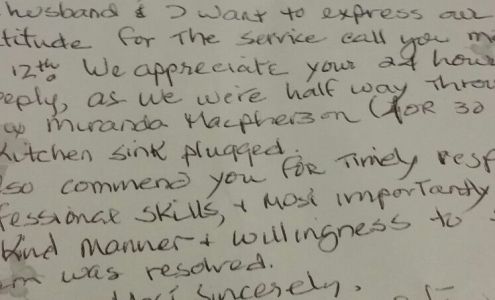 husband & I want to express our
titude for the service call you m
12th. We appreciate your 24 hour
eply, as we were half way throu
Miranda Macpherson (for 30
kitchen sink plugged.
so commend you for timely resp
fessional skills, + most importantly
kind manner + willingness to
m was resolved.
Most sincerely,